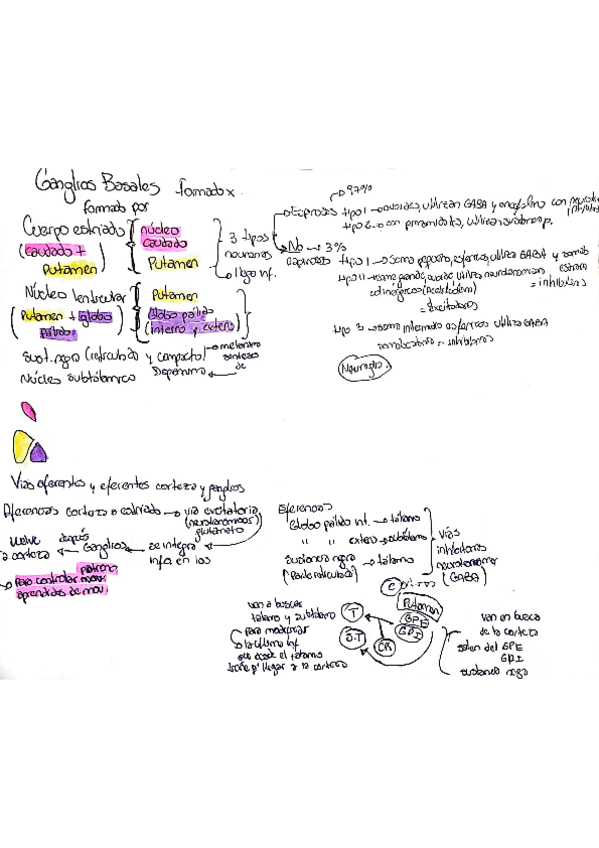 Ganglios Basales formado x
formado por
Cuerpo estriado
(caudado +
Putamen)
núcleo
caudado
Putamen
3 tipos
neuronas
llega inf.
→ 97%
Espinosas tipo I → ovoides, utilizan GABA y
tipo 2 → con piramidales, utilizan
No → 3%
espinosas tipo I → soma pequeño, esféricas, utiliza GABA y
tipo II → soma grande, utiliza neurotransmisor
colinérgicos (Acetilcolina)
= inhibitorias
= Excitadoras
tipo 3 → soma intermedio utiliza GABA
= inhibitorias
Neuroglia.
Núcleo lenticular
(Putamen + globo
pálido)
Putamen
Globo pálido
(interno y externo)
Sust. negra (reticulada y compacta) → melanina
sintesis
de
Dopamina
Núcleo subtálamico
Vías aferentes y eferentes corteza y ganglios
Aferencias corteza a estriado → vía excitatoria
(neurotransmisor)
glutamato
se integra
info en los
Ganglios
después
vuelve
a corteza
patrones
para controlar mov.
aprendidos de mov.
Eferencias
Globo pálido int. → tálamo
" " extern → subtálamo
sustancia negra → tálamo
(Parte reticulada)
Vías
inhibitorias
neurotransmisor
(GABA)
C
Putamen
GPE
GPI
T
S.T
van a buscar
tálamo y subtálamo
para modular
la última inf
que desde el tálamo
tiene p' llegar a la corteza
van en busca
de la corteza
salen del GPE
GPI
sustancia negra